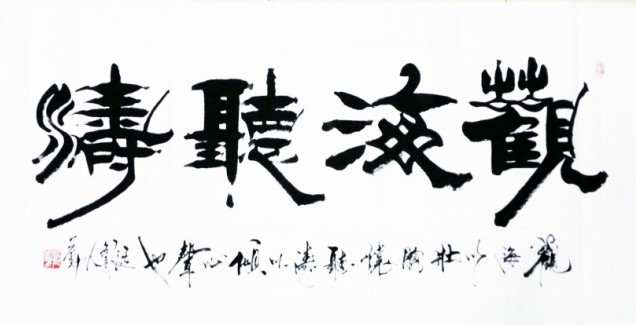 觀海聽濤
觀海以壯胸懷聽濤以傾心聲也